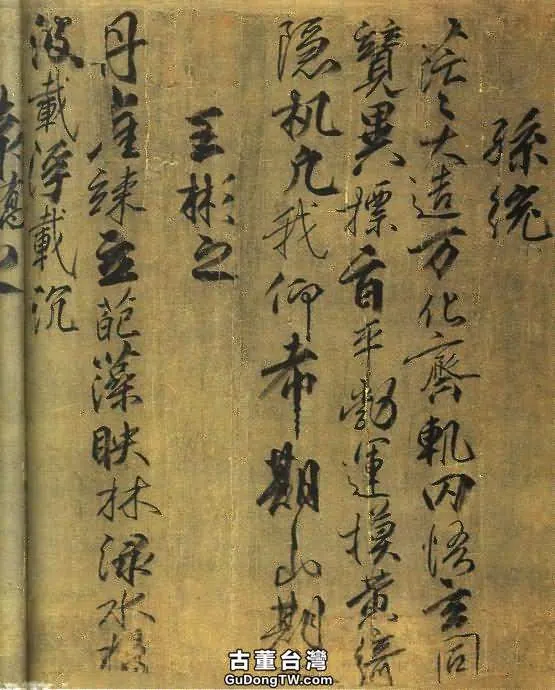 孫統
茫〻大造万化齊軌罔悟玄同
競異摽旨平勃運摸黃綺
隐机凡我仰希期山期
王彬之
丹崖竦立葩藻映林淥水揚
波載浮載沉
古董台灣
GuDongTW.com